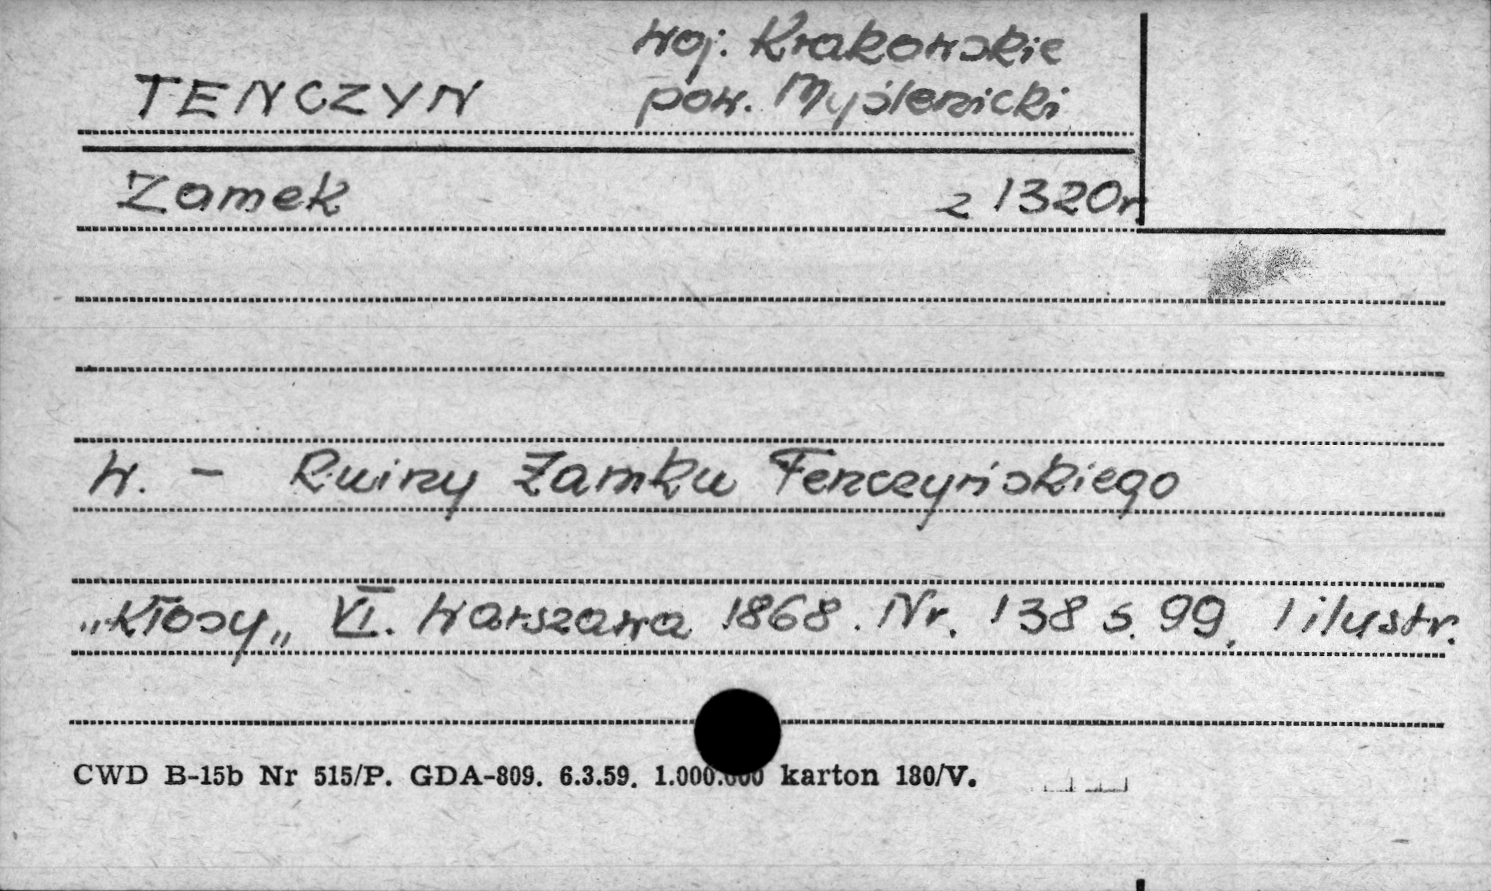 woj. Krakowskie
TENCZYN pow. Myślenicki
Zamek z 1320r
W. - Ruiny Zamku Tenczyńskiego
„Kłosy„ VI. Warszawa 1868. Nr. 138 s. 99. 1 ilustr.
CWD B-15b Nr 515/P. GDA-809. 6.3.59. 1.000.000 karton 180/V.